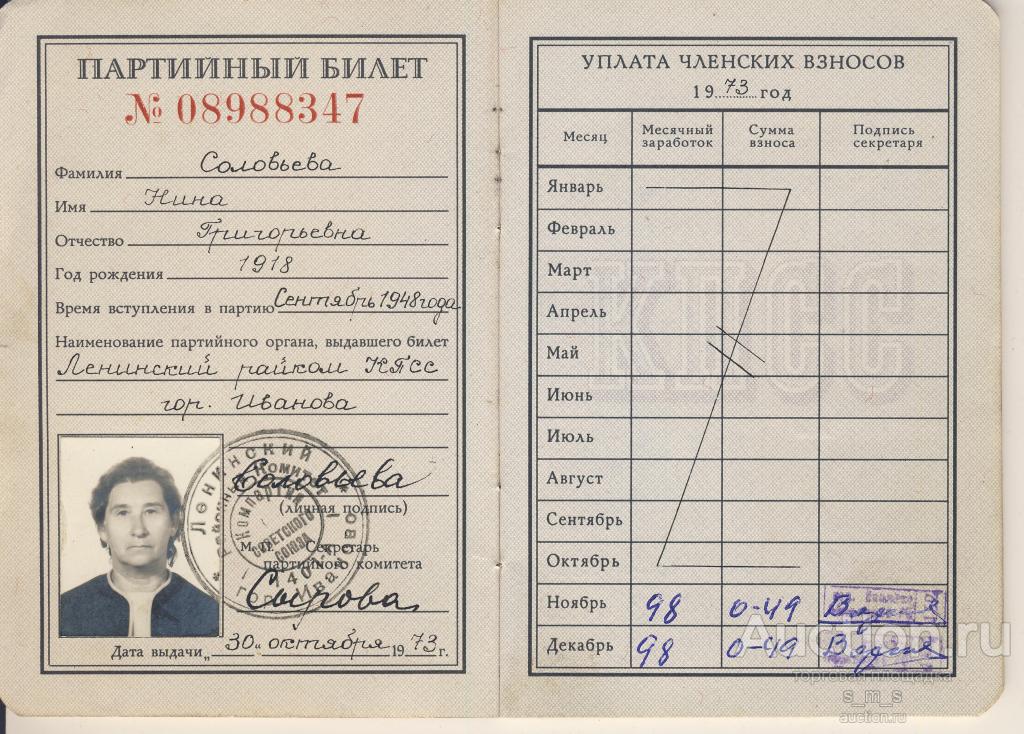 ПАРТИЙНЫЙ БИЛЕТ
№ 08988347
Фамилия Соловьева
Имя Нина
Отчество Григорьевна
Год рождения 1918
Время вступления в партию Сентябрь 1948 года
Наименование партийного органа, выдавшего билет
Ленинский райком КПСС
гор. Иванова
Соловьева
(личная подпись)
М. П. Секретарь
партийного комитета
Сырова
Дата выдачи „30“ октября 1973 г.
Ленинский
Районный Комитет
Компартии
Советского
Союза
гор. Иваново
УПЛАТА ЧЛЕНСКИХ ВЗНОСОВ
1973 год
Месяц Месячный заработок Сумма взноса Подпись секретаря
Январь
Февраль
Март
Апрель
Май
Июнь
Июль
Август
Сентябрь
Октябрь
Ноябрь 98 0-49
Декабрь 98 0-49
КПСС
Auction.ru
торговая площадка
s_m_s
auction.ru